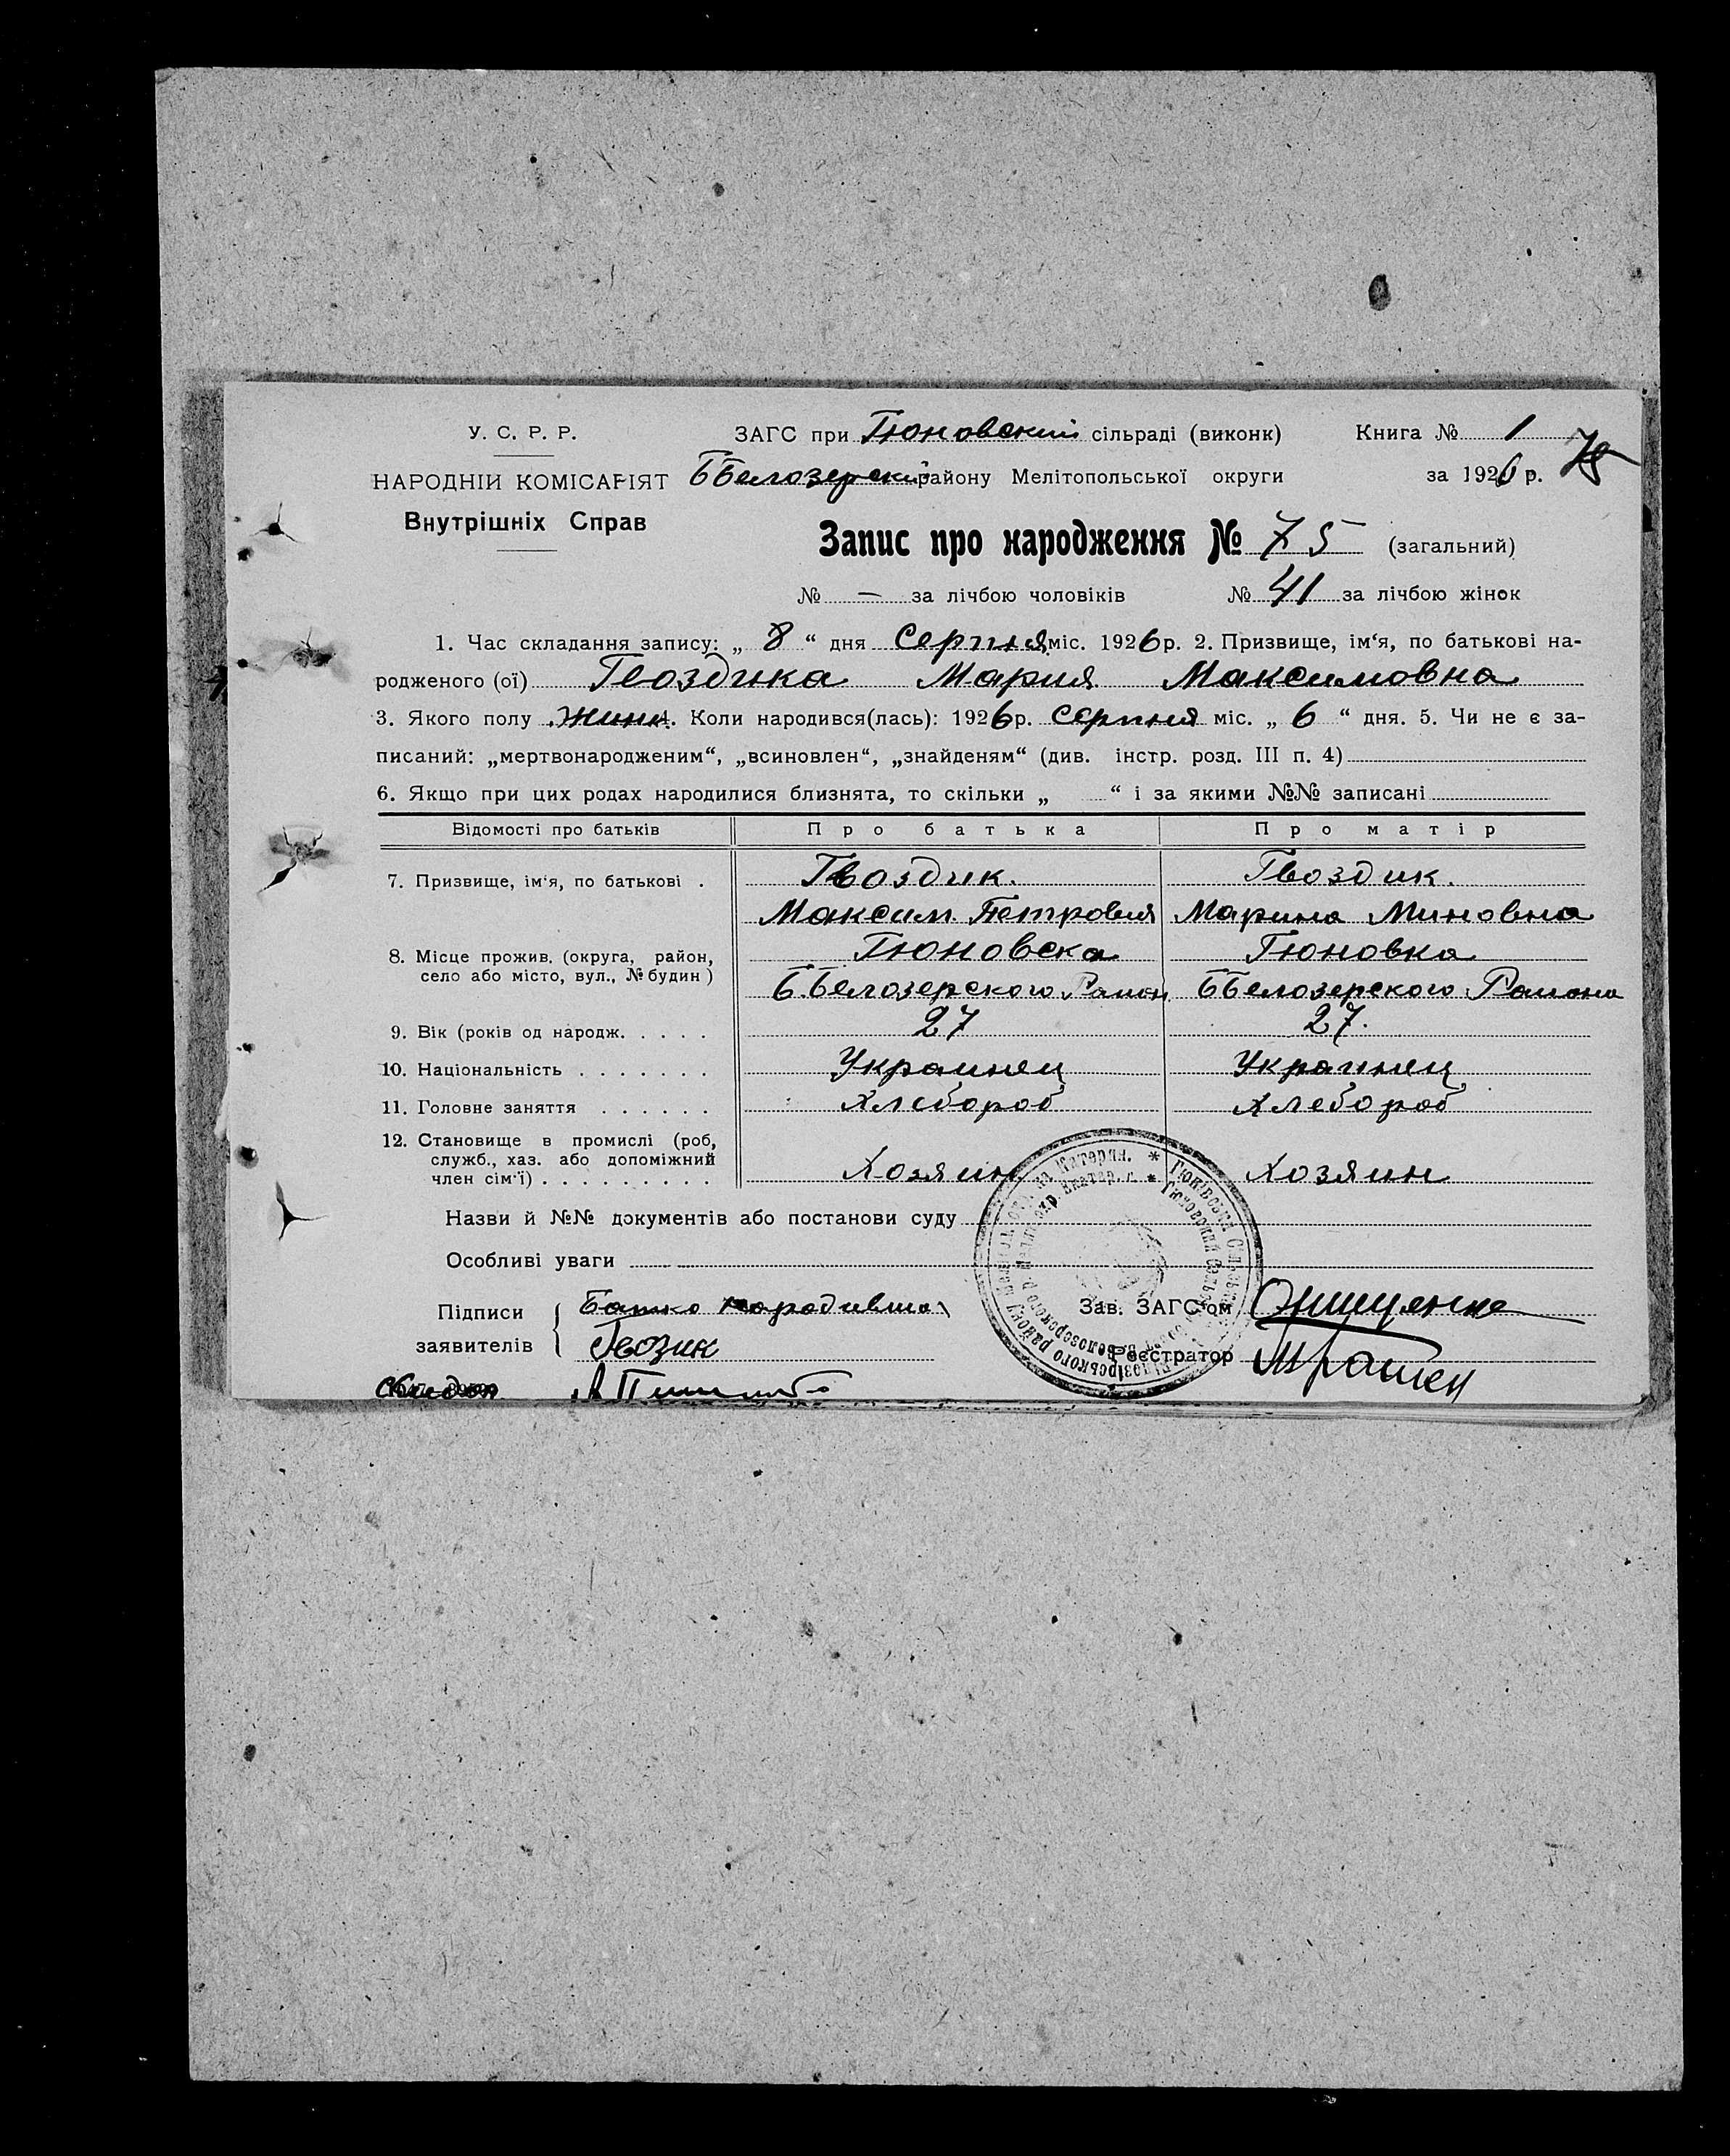 У. С. Р. Р.
НАРОДНІЙ КОМІСАРІЯТ
Внутрішніх Справ
ЗАГС при Гюновский сільраді (виконк)
Книга № 1
ББелозерский району Мелітопольської округи
за 1926 р.
75
Запис про народження № 75 (загальний)
№ — за лічбою чоловіків № 41 за лічбою жінок
1. Час складання запису: „ 8 “ дня Серпня міс. 1926 р. 2. Призвище, ім‘я, по батькові на-
родженого (ої) Гвоздика Мария Максимовна
3. Якого полу Жинк. 4. Коли народився(лась): 1926 р. серпня міс. „ 6 “ дня. 5. Чи не є за-
писаний: „мертвонародженим“, „всиновлен“, „знайденям“ (див. інстр. розд. III п. 4)
6. Якщо при цих родах народилися близнята, то скільки „ “ і за якими №№ записані
Відомості про батьків Про батька Про матір
7. Призвище, ім‘я, по батькові . Гвоздик. Гвоздик.
Максим Петровия Марина Миновна
8. Місце прожив. (округа, район, Гюновска Гюновка
село або місто, вул., № будин) Б.Белозерского Раион ББелозерского Раиона
9. Вік (років од народж. . . . . 27 27.
10. Національність . . . . . . . Украинец Украинец
11. Головне заняття . . . . . . Хлебороб Хлебороб
12. Становище в промислі (роб,
служб., хаз. або допоміжний Хозяин Хозяин
член сім‘ї) . . . . . . . . .
Назви й №№ документів або постанови суду
Особливі уваги
Підписи Батко народивша
заявителів Гвозик
Зав. ЗАГС‘ом Онищенко
Реєстратор
свидок